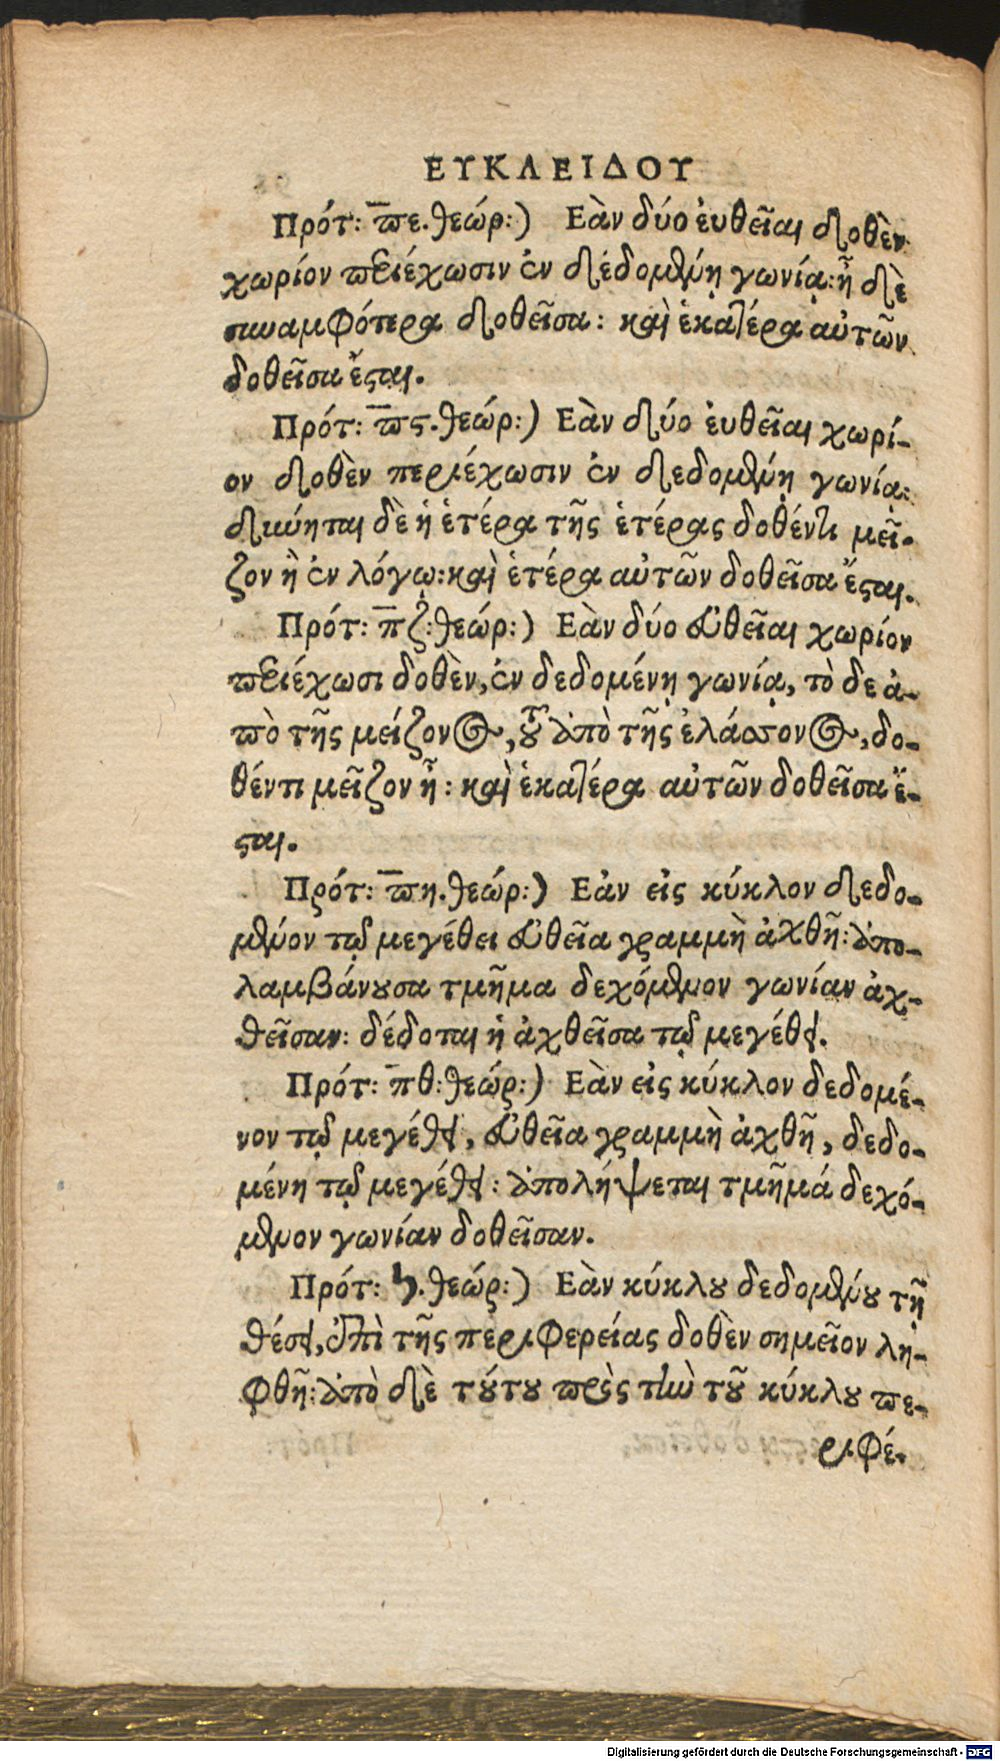 ΕΥΚΛΕΙΔΟΥ
Πρότ: π̅ε. θεώρ:) Εὰν δύο ἐυθεῖαι δοθὲν
χωρίον περιέχωσιν ἐν δεδομένῃ γωνίᾳ: ἦ δὲ
συναμφότερα δοθεῖσα: καὶ ἑκατέρα αὐτῶν
δοθεῖσα ἔςαι.
Πρότ: π̅ϛ. θεώρ:) Εὰν δύο ἐυθεῖαι χωρί-
ον δοθὲν περιέχωσιν ἐν δεδομένῃ γωνίᾳ:
δύνηται δὲ ἡ ἑτέρα τῆς ἑτέρας δοθέντι μεῖ-
ζον ἢ ἐν λόγῳ: καὶ ἑτέρα αὐτῶν δοθεῖσα ἔςαι.
Πρότ: π̅ζ: θεώρ:) Εὰν δύο εὐθεῖαι χωρίον
περιέχωσι δοθὲν, ἐν δεδομένῃ γωνίᾳ, τὸ δε ἀ-
πὸ τῆς μείζονος, τοῦ ἀπὸ τῆς ἐλάσσονος, δο-
θέντι μεῖζον ἦ: καὶ ἑκατέρα αὐτῶν δοθεῖσα ἔ-
ςαι.
Πρότ: π̅η. θεώρ:) Εἀν εἰς κύκλον δεδο-
μένον τῷ μεγέθει εὐθεῖα γραμμὴ ἀχθῆ: ἀπο-
λαμβάνουσα τμῆμα δεχόμενον γωνίαν ἀχ-
θεῖσαν: δέδοται ἡ ἀχθεῖσα τῷ μεγέθει.
Πρότ: π̅θ: θεώρ:) Εὰν εἰς κύκλον δεδομέ-
νον τῷ μεγέθει, εὐθεῖα γραμμὴ ἀχθῆ, δεδο-
μένη τῷ μεγέθει: ἀπολήψεται τμῆμά δεχό-
μενον γωνίαν δοθεῖσαν.
Πρότ: ϟ. θεώρ:) Εὰν κύκλου δεδομένου τῇ
θέσει, ἐπὶ τῆς περιφερείας δοθὲν σημεῖον λη-
φθῆ: ἀπὸ δὲ τούτου πρὸς τὴν τοῦ κύκλου πε-
ριφέ-
Digitalisierung gefördert durch die Deutsche Forschungsgemeinschaft - DFG